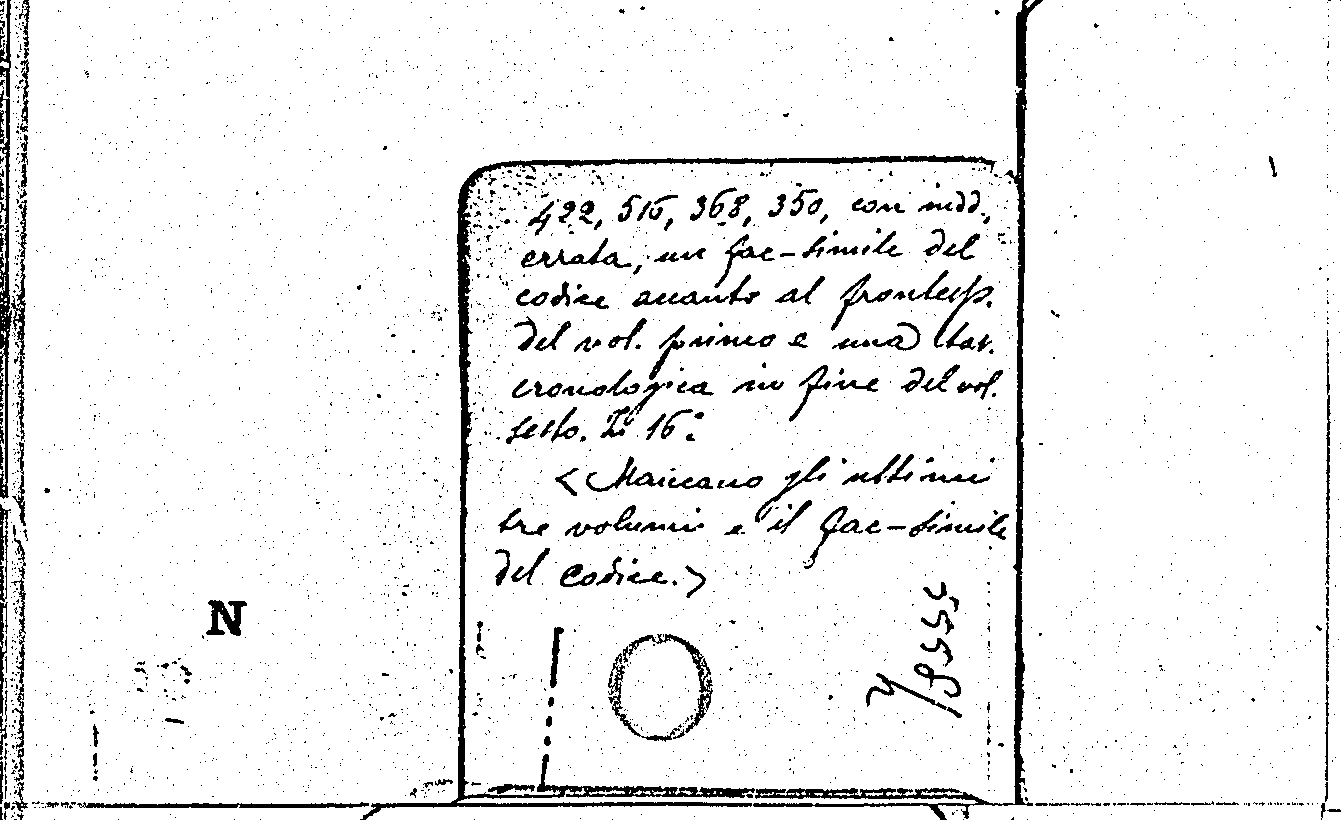 422, 516, 368, 350, con indd.,
errata, un fac-simile del
codice avanti al frontesp.
del vol. primo e una tav.
cronologica in fine del vol.
sesto. In 16º.
<Mancano gli ultimi
tre volumi e il fac-simile
del codice.>
N